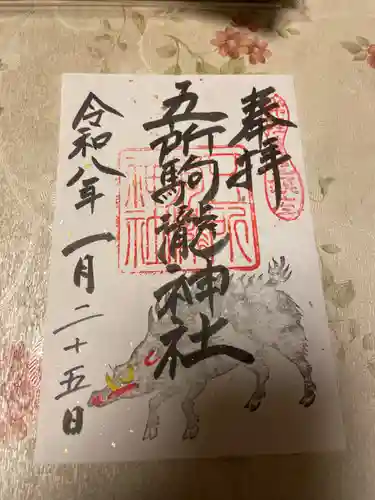 奉拝
五所駒瀧神社
令和八年一月二十五日